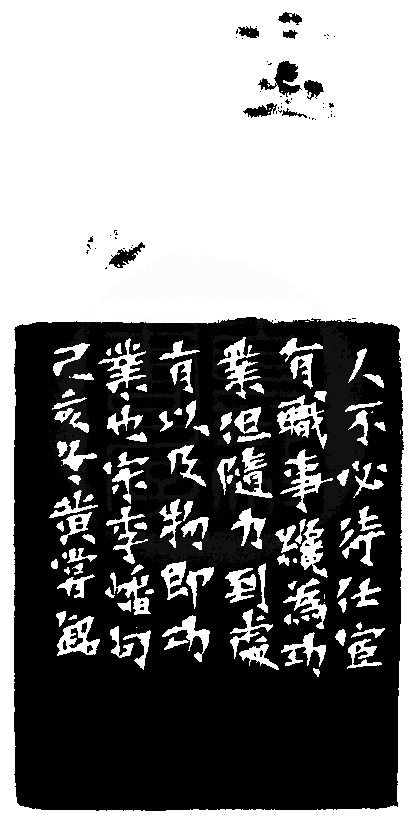 人不必待仕宦
有職事纔為功
業但隨力到處
有以及物即功
業也宋李嶓句
己亥冬黃嘗銘